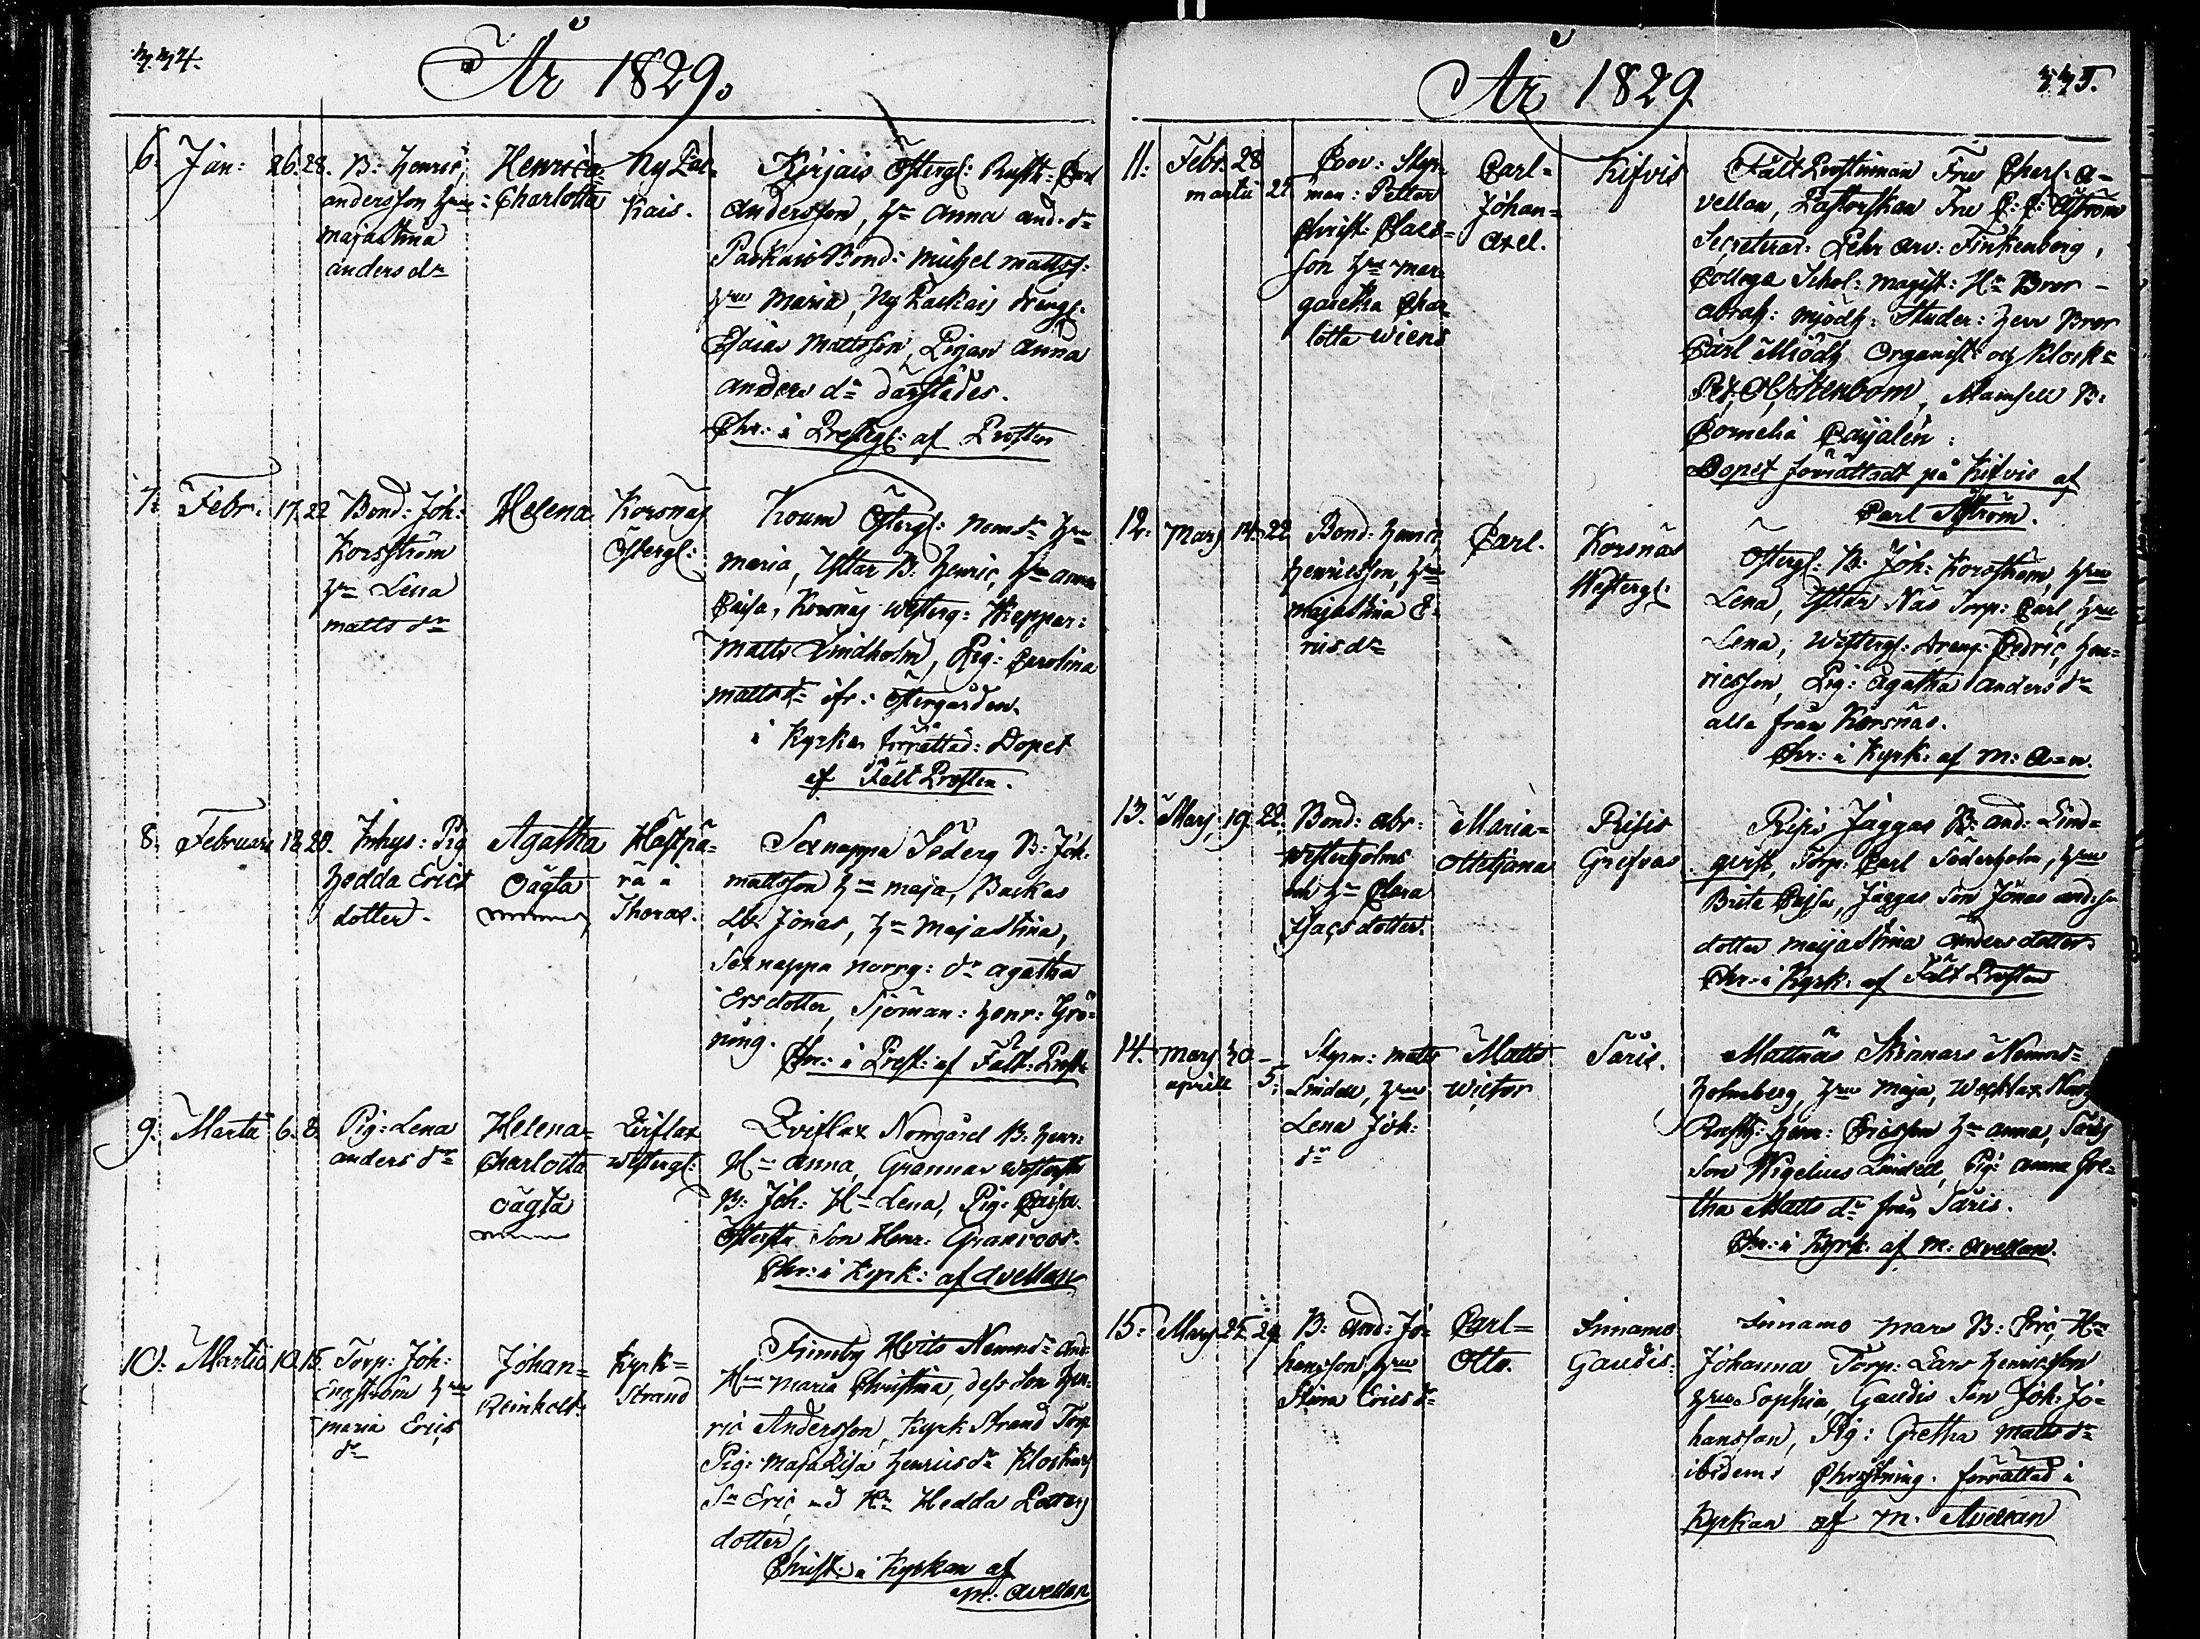 334.
År 1829.
6. Jan: 26. 28. B: Henric andersson Hu majastina anders dr
Henrica- Charlotta
Ny Pac- kais.
Kirjais Östergl: Rustk: Carl
Andersson, Hu Anna and. dr
Packais Bond: Michel matts:
Hu Maria, Ny Packais dreng:
Esaias Mattsson, Pigan Anna
anders dr därstädes.
Chr: i Prestgl: af Prosten
7. Febr. 17. 22 Bond: Joh: Korsström Hu Lena matts dr
Helena
Korsnäs Östergl:
maria, Yttar B: Henric, Hu anna
Caisa, Korsnäs Westerg:
Matts Lindholm, Pig: Carolina
matts dr ifr: Östergården.
i Kyrkan förrättad: Dopet
af Fält Prosten.
8. Februari 18. 20. Inhys: Pig Hedda Erics dotter.
Agatha oägta
Thoras.
Sexnappa Söderg B: Joh:
mattsson Hu maja, Backas
Jonas, Hu Majastina,
Sexnappa norrg: dr agatha
Ersdotter, Sjöman: Henr: Grö-
ning.
Chr: i Prest: af Fält: Prost:
9. Martii 6. 8. Pig: Lena anders dr
Helena- Charlotta oägta
Westergl:
Norrgård B: Henr:
Hu Anna, Grannas
B: Joh: Hu Lena, Pig: Caisa
Son Henr: Granroos.
Chr: i Kyrk: af Avellan
10. Martii 10. 15. Torp: Joh: Engström Hu maria Erics dr
Johan- Reinholt.
Kyrk- Strand
Finnby Hvits Nemnd: And:
Hu Maria Christina, dess Son Hen-
ric Andersson, Kyrk Strand Torp
Pig: Maja Lisa Henrics dr Klockars
Sn Eric med Hu Hedda
dotter
Christ: i Kyrkan af
m: avellan
335.
År 1829.
11. Febr. 28 martii 2. Cov: Styr- man: Petter Christ: Carls- son Hu mar- garetha Char- lotta Wiens
Carl- Johan- Axel.
Kifvis
Fält Prostinnan Fru Charl: A-
vellan, Pastorskan Fru C: C: Åström
Secreterar: Pehr Arv: Finkenberg,
Collega Schol: Magist: Hr Bror-
abrah: Mjödh: Studer: Herr Bror
Carl Miödh Organist och Klock-
Stenbom, Mamsell B:
Cornelia Cajalén:
Dopet förrättadt på Kifvis af
Carl Åström.
12. Marj 14. 22 Bond: Henric Henricsson, Hu majastina E- rics dr
Carl.
Korsnäs Westergl:
Östergl: B: Joh: Korsström, Hu
Lena, Yttar Näs Torp: Carl, Hu
Lena, Westergl: dreng: Fredric Hen-
ricsson, Pig: Agatha Anders dr
alla från Korsnäs.
Chr: i Kyrk: af m: A=n.
13. Marj 19. 22 Bond: abr: Westerholms och Hu Clara Isacs dotter.
Maria- Ottetjana
Pifis Grefvas
Pifis Jaggas B: and: Lind-
qvist, Torp: Carl Söderholm, Hu
Brita Cajsa, Jaggas Son Jonas and:
dotter majastina anders dotter
Chr: i Kyrk. af Fält Prosten
14. Marj 30- aprill 5. Styrm: matts Lindell, Hu Lena Joh: dr
Matts Wictor
Säris.
Mattnäs Skinnars Nemnd-
Holmberg, Hu Maja,
Rusth: Henr: Ericsson Hu anna, Säris
Son Wigelius Lindell, Pig: Anna Gre-
tha Matts dr från Säris.
Chr: i Kyrk. af m: Avellan.
15. Marj 25. 29. B: And: Jo- hansson, Hu Stina Erics dr
Carl- Otto.
Finnamo Gaudis:
Finnamo mars B: Eric Hu
Johanna, Torp: Lars Henricsson
Hu Sophia, Gaudis Son Joh: Jo-
hansson, Pig: Gretha Matts dr
ibidem: Christning: förrättad i
Kyrkan af m. Avellan